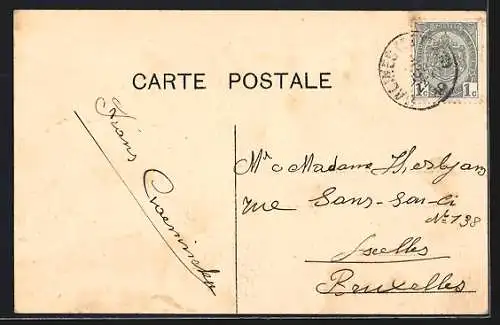 CARTE POSTALE
Frans
Mr & Madame
rue Sans-Souci
No 138
Ixelles
Bruxelles
1c 1c